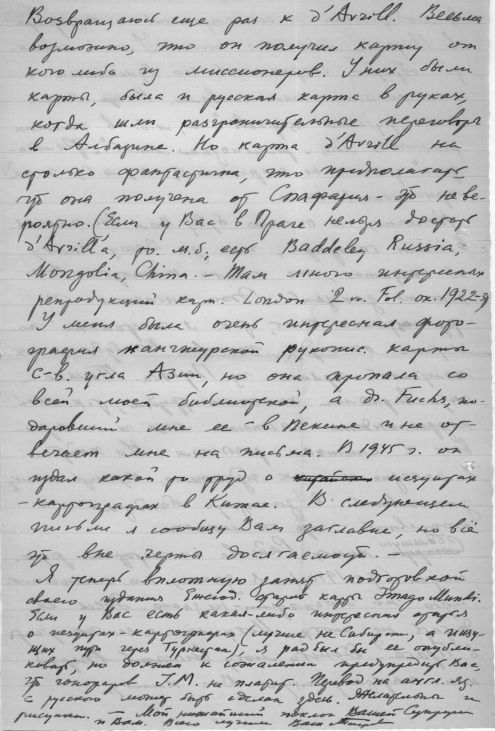 Возвращаюсь еще раз к d'Avrill. Весьма
возможно, что он получил карту от
кого либо из миссионеров. У них были
карты, была и русская карта в руках,
когда шли разграничительные переговоры
в Албазине. Но карта d'Avrill на
столько фантастична, что предполагать
что она получена от Спафария - это неве-
роятно. (Если у Вас в Праге нельзя достать
d'Avrill'a, то, м.б., есть Baddeley Russia,
Mongolia, China. - Там много интересных
репродукций карт. London 2 vv. Fol. ок. 1922-
У меня была очень интересная фото-
графия манчжурской рукопис. карты
С-в. угла Азии, но она пропала со
всей моей библиотекой, а dr. Fuchs, по-
даривший мне ее - в Пекине и не от-
вечает мне на письма. В 1945 г. он
издал какой то труд о иезуитах
-картографах в Китае. В следующем
письме я сообщу Вам заглавие, но всё
это вне черты досягаемости. -
Я теперь вплотную занят подготовкой
своего издания Ежегод. старой карты Imago Mundi.
Если у Вас есть какая-либо интересная статья
о иезуитах-картографах (лучше не Сибири, а ищу-
щих пути через Туркестан), я рад был бы ее опубли-
ковать, но должен к сожалению предупредить Вас,
что гонораров I.M. не платит. Перевод на англ. яз.
с русского может быть сделан здесь. Желательны и
рисунки. - Мой нижайший поклон Вашей Супруге
и Вам. Всего лучшего Ваш